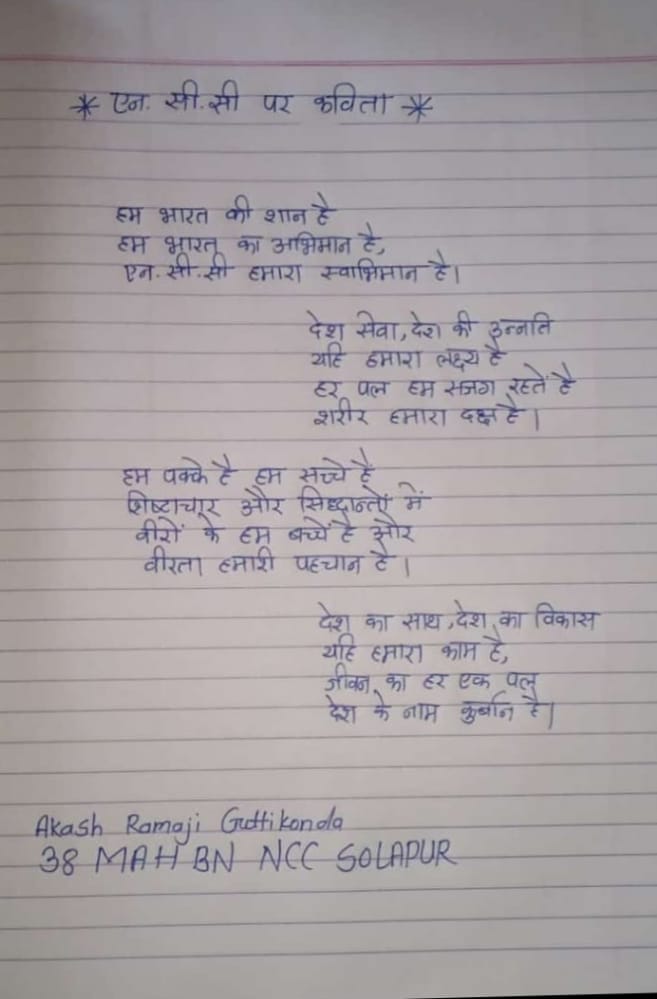 * एन. सी.सी पर कविता *
हम भारत की शान है
हम भारत का अभिमान है,
एन.सी.सी हमारा स्वाभिमान है।
देश सेवा, देश की उन्नति
यहि हमारा लक्ष्य है
हर पल हम सजग रहतें है
शरीर हमारा दक्ष है।
हम पक्के है हम सच्चे है
शिष्टाचार और सिध्दान्तों में
वीरों के हम बच्चें है और
वीरता हमारी पहचान है।
देश का साथ, देश का विकास
यहि हमारा काम है,
जीवन का हर एक पल
देश के नाम कुर्बान है।
Akash Ramaji Guttikonda
38 MAH BN NCC SOLAPUR